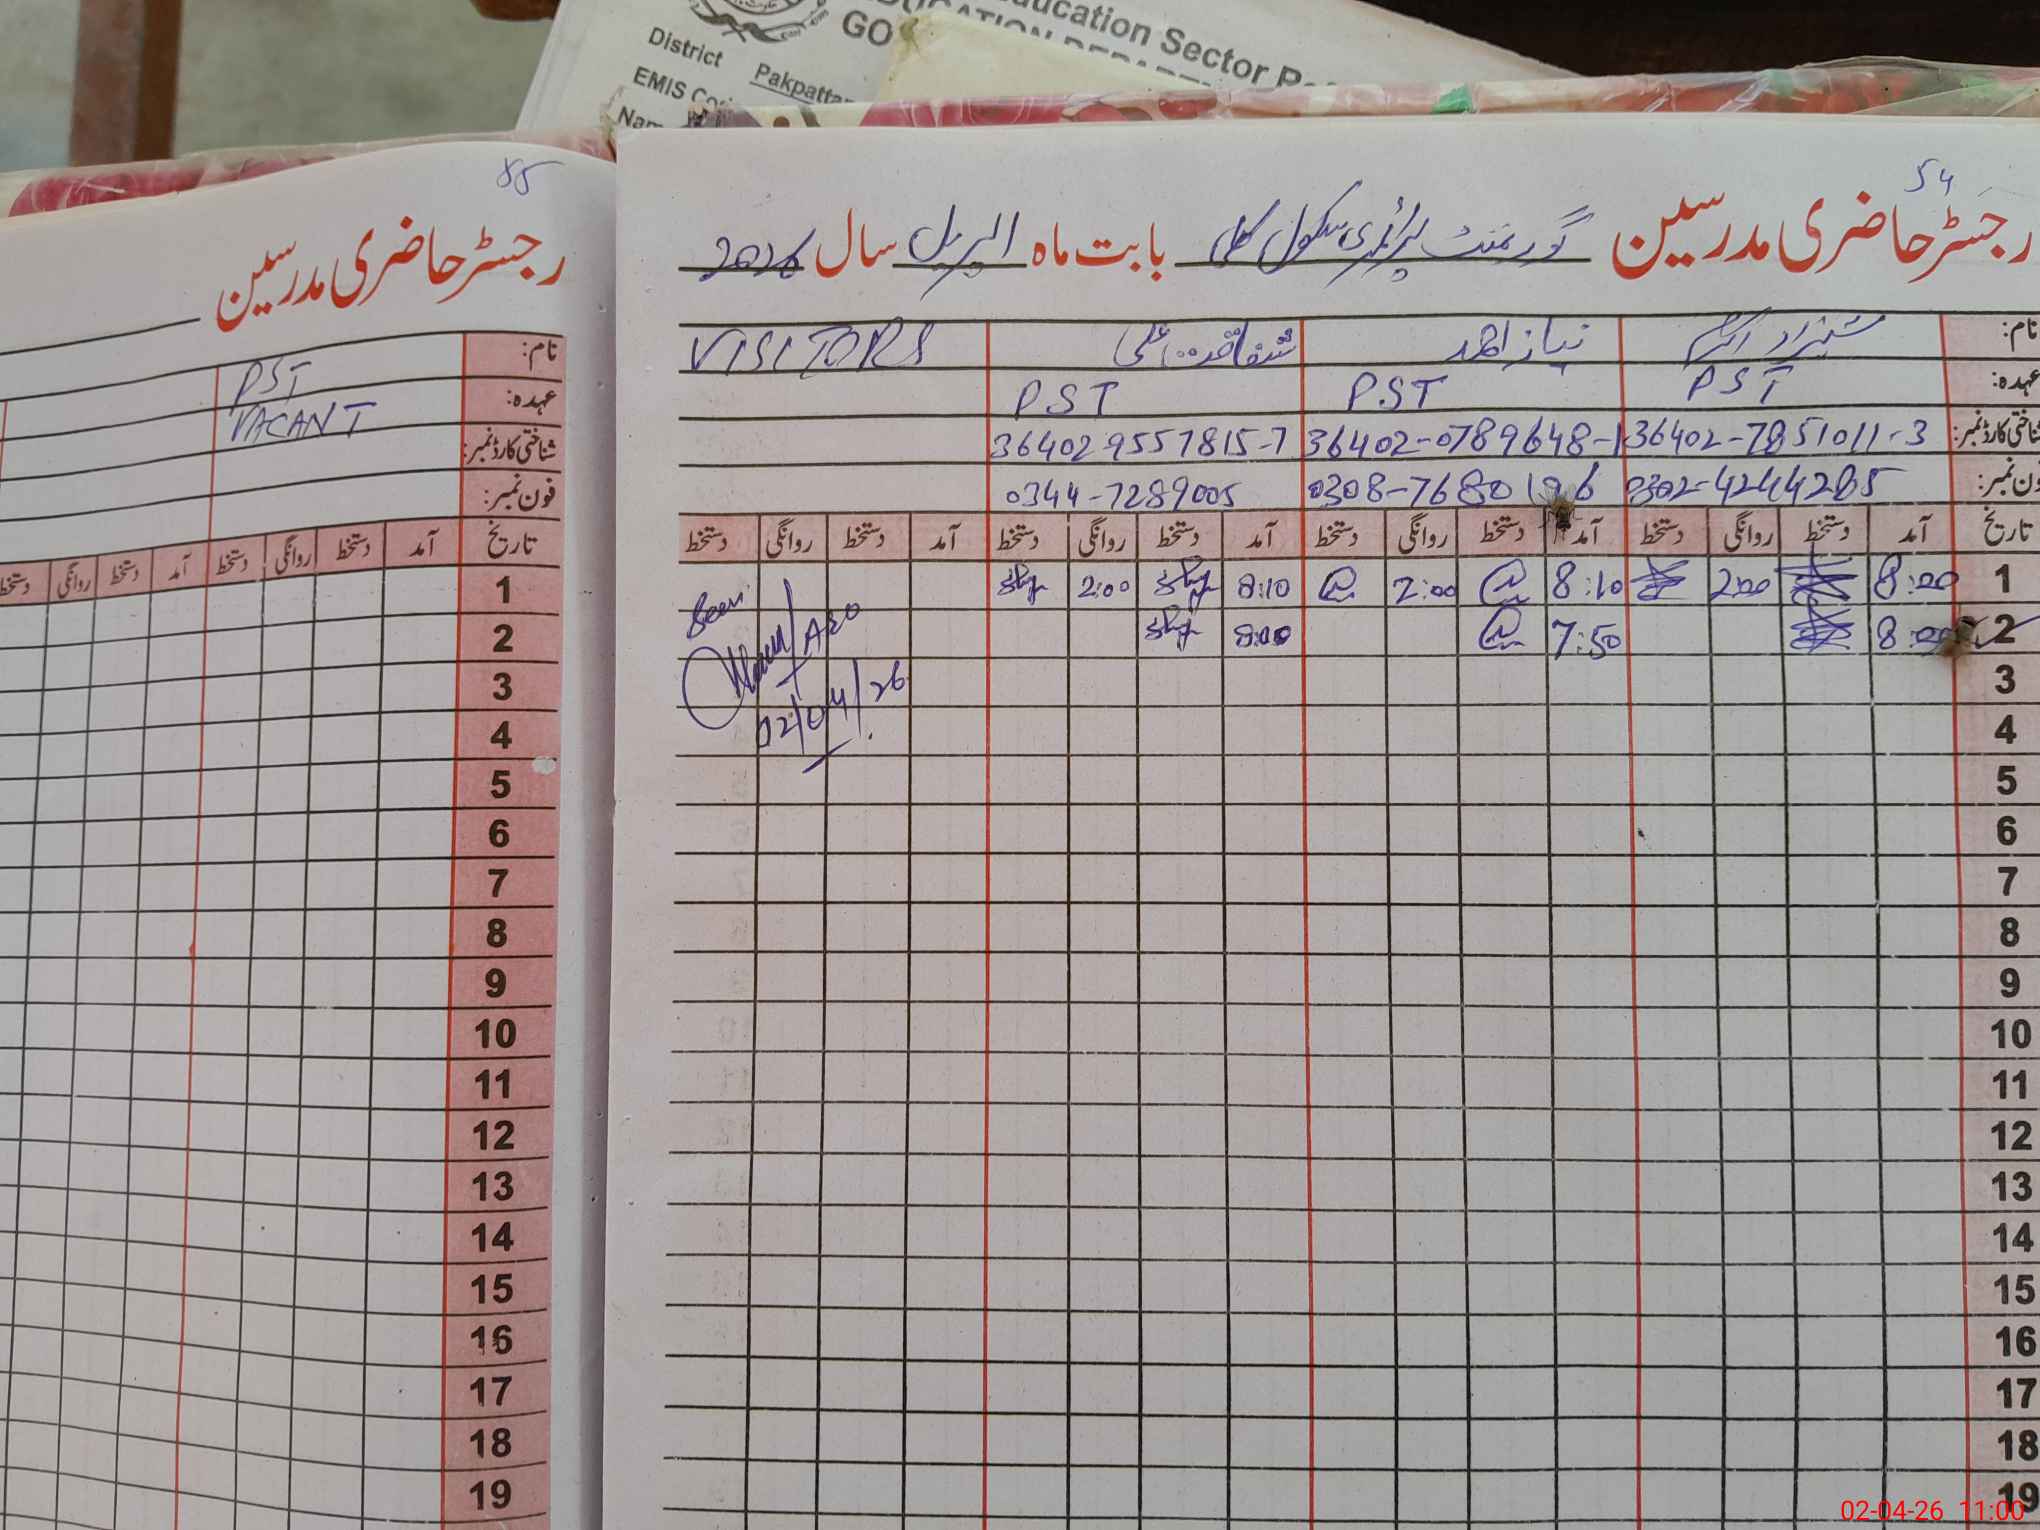 ducation Sector Re
GO
District Pakpattan
EMIS Co
Nam
54
رجسٹر حاضری مدرسین گورنمنٹ پرائمری سکول کلی بابت ماہ اپریل سال 2026
نام: شہزاد اکرم نیاز احمد شفاقت علی VISITORS
عہدہ: PST PST PST
شناختی کارڈ نمبر: 36402-7851011-3 36402-0789648-1 36402-9557815-7
فون نمبر: 0302-4244285 0308-7680196 0344-7289005
تاریخ آمد دستخط روانگی دستخط آمد دستخط روانگی دستخط آمد دستخط روانگی دستخط آمد دستخط روانگی دستخط
1 8:00 2:00 8:10 2:00 8:10 2:00 Seen
2 8:00 7:50 8:00
AEO
02/04/26
3
4
5
6
7
8
9
10
11
12
13
14
15
16
17
18
19
رجسٹر حاضری مدرسین
نام: PST
عہدہ: VACANT
شناختی کارڈ نمبر:
فون نمبر:
تاریخ آمد دستخط روانگی دستخط آمد دستخط روانگی دستخط
1
2
3
4
5
6
7
8
9
10
11
12
13
14
15
16
17
18
19
02-04-26 11:00